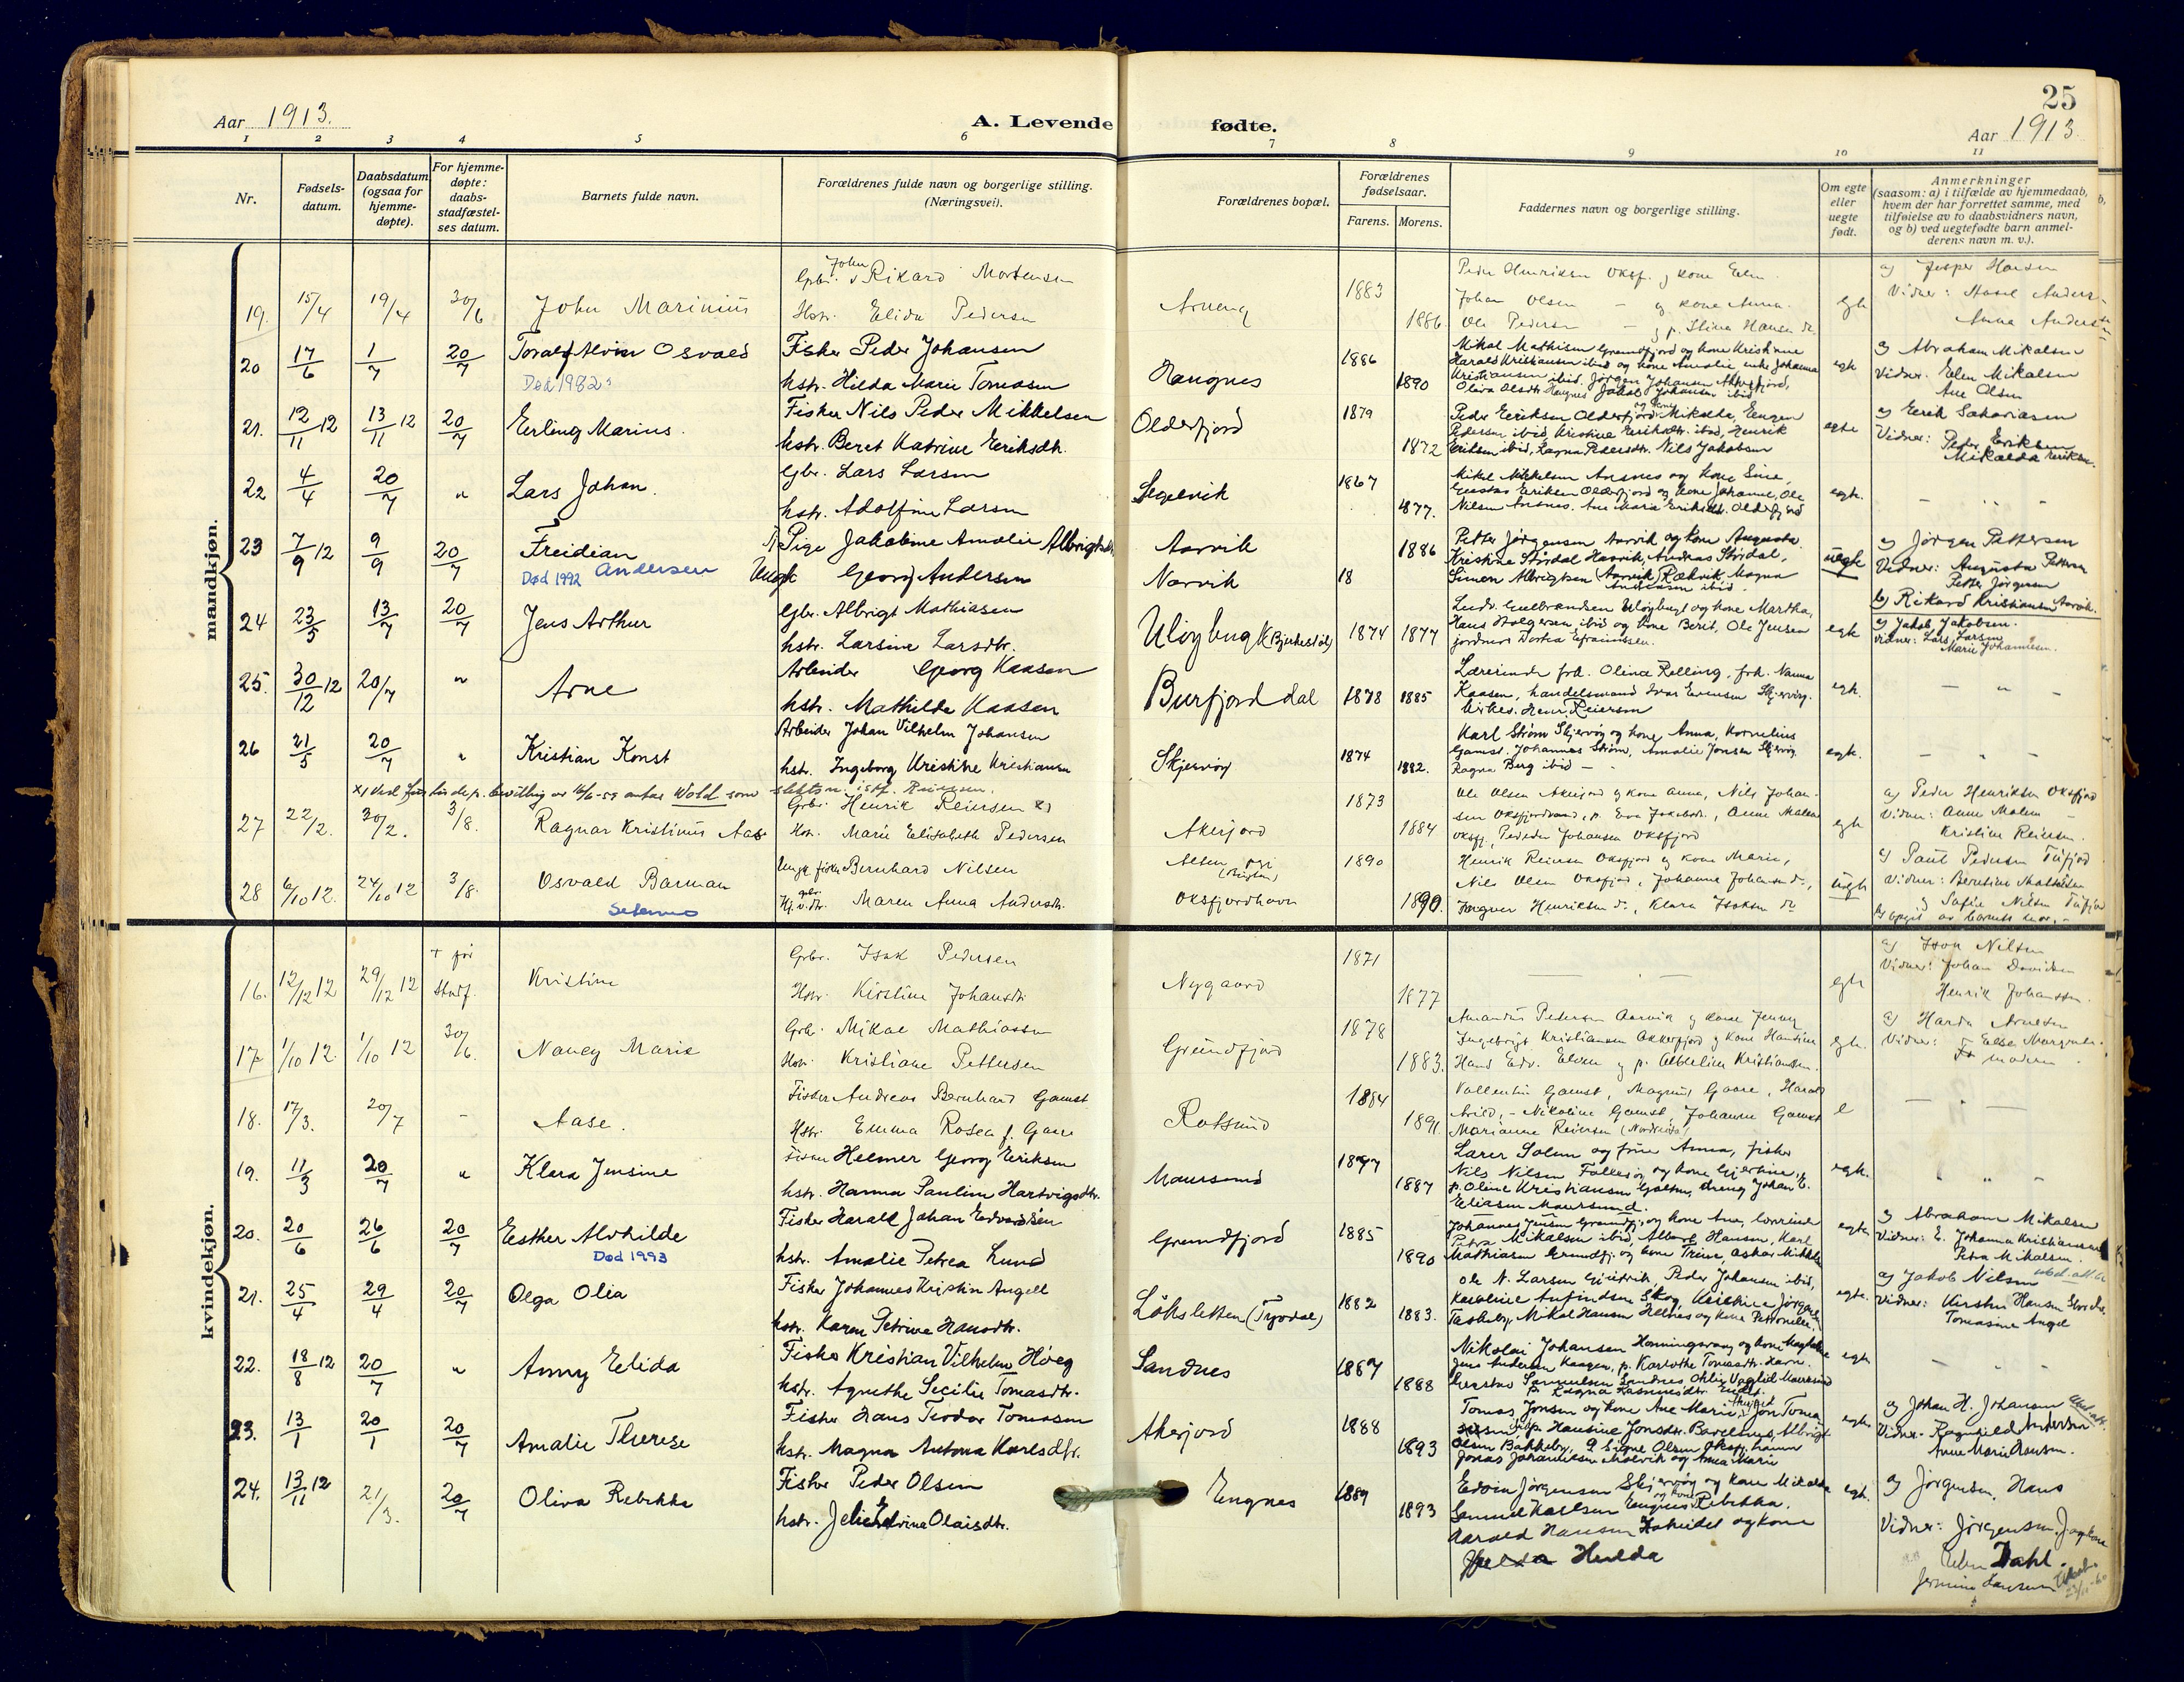 25
Aar 1913.
A. Levende fødte.
Aar 1913.
1 2 3 4 5 6 7 8 9 10 11
Nr.
Fødsels-
datum.
Daabsdatum
(ogsaa for
hjemme-
døpte).
For hjemme-
døpte:
daabs-
stadfæstel-
ses datum.
Barnets fulde navn.
Forældrenes fulde navn og borgerlige stilling.
(Næringsvei).
Forældrenes bopæl.
Forældrenes
fødselsaar.
Farens. Morens.
Faddernes navn og borgerlige stilling.
Om egte
eller
uegte
født.
Anmerkninger
(saasom: a) i tilfælde av hjemmedaab,
hvem der har forrettet samme, med
tilføielse av to daabsvidners navn,
og b) ved uegtefødte barn anmel-
derens navn m. v.).
mandkjøn.
19. 15/4 19/4 30/6 John Marinius
Gbr. John Rikard Mortensen
Hstr. Elida Pedersen
1883
1886.
Peder Henriksen Oksf. og kone Elen
Johan Olsen — og kone Anna
Ole Pedersen — og p. Stina Hansen do.
egte
a) Jesper Hansen
20 17/6 1/7 20/7 Toralf Alvin Osvald
Død 1982
Fisker Peder Johansen
hstr. Hilda Marie Tomasen
Haugnes
1886
1890
Mikal Mathisen Grundfjord og kone Kristine
Harald Kristiansen ibid og kone Amalie, enke Johanna
Kristiansen ibid. Jørgen Johansen
egte
a) Abraham Mikalsen
Vidner: Elen Mikalsen
Ane Olsen
21. 12/11 12 13/11 12 20/7 Erling Marius.
Fisker Nils Peder Mikkelsen
hstr. Beret Katrine Eriksdtr.
Olderfjord
1879
1872
Peder Eriksen Olderfjord og kone Mikalda, Eugen
Pedersen ibid, Kristine Eriksdtr. ibid, Henrik
Eriksen ibid, Ragna Pedersdtr. Nils Jakobsen
egte
a) Erik Sakariasen
Vidner: Peder Eriksen
Mikalda Eriksen.
22 4/4 20/7 " Lars Johan.
Gbr. Lars Larsen
hstr. Adolfine Larsen
Segelvik
1867
1877.
Mikal Mikkelsen Arsnes og kone Sine,
Gustav Eriksen Olderfjord og kone Johanne, Ole
Nilsen Arsnes. Ane Marie Eriksdtr. Olderfjord
egte.
23 7/9 12 9/9 20/7 Freidian
Død 1992 Andersen
Pige Jakobine Amalie Albrigtsdtr.
Ungk Georg Andersen
Aarvik
Narvik
18
1886
Petter Jørgensen Aarvik og kone Augusta
Kristine Stordal Havnvik, Andreas Stordal,
Simon Albrigtsen (Aarvik) Rækvik, Magna
uegte
a) Jørgen Pettersen
Vidner: Augusta Pettersen
Petter Jørgensen
b) Rikard Kristiansen Aarvik.
24 23/5 13/7 20/7 Jens Arthur
Gbr. Albrigt Mathiasen
hstr. Larsine Larsdtr.
Uløybugt (Bjerkestøl)
1874 1877
Ludv. Gulbrandsen Uløybugt og kone Martha,
Hans Holgersen ibid og kone Berit, Ole Jensen
jordmor Dortea Efraimssen.
egte
a) Jakob Jakobsen.
Vidner: Lars Larsen
Marie Johannesen.
25. 30/12 12 20/7 " Arne
Arbeider Georg Kaasen
hstr. Mathilde Kaasen
Burfjorddal
1878 1885
Lærerinde frk. Olina Relling, frk. Nanna
Kaasen, handelsmand Ivar Evensen Skjervøy.
Kirkes. Henr. Reiersen
egte.
26 21/5 20/7 " Kristian Konst
Arbeider Johan Vilhelm Johansen
hstr. Ingeborg Kristine Kristiansen
Skjervøy
1874
1882.
Karl Strøm Skjervøy og kone Anna, Kornelius
Gamst. Johannes Strøm, Amalie Jensen Skjervøy
Ragna Berg ibid —
egte.
x) Ved Justisdep. bevilling av 16/6-59 antar Wold som slektsn. istf. Reiersen.
27 22/2. 30/2. 3/8. Ragnar Kristinus Aas
Grbr. Henrik Reiersen x)
Hstr. Marie Elisabeth Pedersen
Akerjord
1873
1884
Ole Olsen Akerjord og kone Anna, Nils Johan-
sen Oksfjordvand, p. Eva Jakobsdtr., Anne Malene
Oksfj, Peder Johansen Oksfjord
egte
a) Peder Henriksen Oksfjord
Vidner: Anne Malene —
Kristine Reiersen.
28 6/10 12. 24/10 12 3/8. Osvald Barman
Ungk. fisker Bernhard Nilsen
Maren Anna Andersdtr.
Oksfjordhavn
1890
1890.
Henrik Reiersen Oksfjord og kone Marie,
Nils Olsen Oksfjord, Johanne Johansen do.,
Ingvar Henriksen do., Klara Isaksen do
uegte
a) Paul Pedersen Tufjord
Vidner: Berntine Mathisen
og Sofie Nilsen Tufjord
b) opgit av barnets mor.
kvindekjøn.
16. 12/12 12 29/12 12 † før stadf. Kristine
Grbr. Isak Pedersen
Hstr. Kirstine Johansdtr.
Nygaard
1871
1877
egte
a) Isak Nilsen
Vidner: Johan Davidsen
Henrik Johansen.
17. 1/10 12. 1/10 12 30/6. Nancy Marie
Grbr. Mikal Mathiassen
Hstr. Kristiane Pettersen
Grundfjord
1878
1883.
Amandus Pedersen Aarvik og kone Jenny
Ingebrigt Kristiansen Akkarfjord og kone Hansine
egte.
a) Harda Arnesen
18. 17/3. 20/7 - Aase.
Fisker Andreas Bernhard Gamst
Hstr. Emma Rosea f. Gaare
Rotsund
1884
1891.
Vallentin Gamst, Magnus Gaare, Harald
Arild, - Nikoline Gamst, Johanne Gamst
Marianne Reiersen (Nordreisa)
e
19. 11/3 20/7 " Klara Jensine
Fisker Helmer Georg Eriksen
hstr. Hanna Pauline Hartvigsdtr.
Maursund
1877
1887
Lærer Solem og frue Anna, fisker
Nils Nilsen Follesøy og kone Gjertine,
p. Oline Kristiansen Goltsen, dreng Johan E.
Eliassen Maursund.
egte.
20. 20/6 26/6 20/7 Esther Alvhilde
Død 1993
Fisker Harald Johan Edvardsen
hstr. Amalie Petrea Lund
Grundfjord
1885
1890
Johannes Jensen Grundfj. og kone Ane, lærerinde
Petra Mikalsen ibid, Albert Hansen, Karl
Mathiasen Grundfj. og kone Trine, Oskar Mikkelsen
egte
a) Abraham Mikalsen
Vidner: E. Johanna Kristiansen
Petra Mikalsen.
21. 25/4 29/4 20/7 Olga Olia
Fisker Johannes Kristin Angell
hstr. Karen Petrine Hansdtr.
Løksletten (Tyvdal)
1882
1883.
Ole N. Larsen Gjøvarvik, Peder Johansen ibid,
Karoline Arnfindsen Skog, Kristine Jørgens.
Taskeby, Mikal Hansen Helnes og kone Petronelle.
egte.
a) Jakob Nilsen
Vidner: Kirsten Hansen
Tomasine Angel
22. 18/8 12 20/7 " Anny Elida
Fisker Kristian Vilhelm Høeg
hstr. Agnethe Secilie Tomasdtr.
Sandnes
1887
1888
Nikolai Johansen Honningsvaag og kone Magdalene
Jens Andersen Kaagen, p. Karlotte Tomasdtr. Havn.
Gustav Samuelsen Sandnes
egte
23. 13/1 20/1 20/7 Amalie Therese
Fisker Hans Teodor Tomasen
hstr. Magna Antona Karlsdtr.
Akerjord
1888
1893
Tomas Jonsen og kone Ane Marie, Jon Tomas-
Olsen Bakkeby, p. Signe Olsen Oksfj. havn
egte
a) Johan H. Johansen
Vidner. Ragnhild Andersen
Anne Marie Hansen.
24. 13/11 12 21/3. 20/7 Oliva Rebekka
Fisker Peder Olsen
hstr. Elvine Olaisdtr.
Engnes
1889
1893
Edvin Jørgensen Skjervøy og kone Mikalda
Samuel Karlsen Engnes og kone Rebekka,
Harald Hansen Hakeidet og kone
Hulda
egte.
a) Jørgensen, Hans
Vidner: Jørgensen,
Elen Dahl.